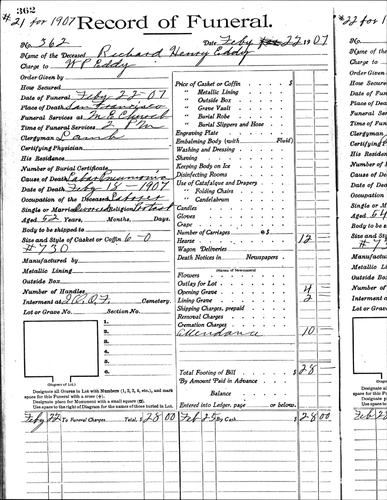 362
# 21 for 1907
Record of Funeral.
No. 362
Date Feby 22 1907
Name of the Deceased Richard Henry Eddy
Charge to W P Eddy
Order Given by
How Secured
Date of Funeral Feby 22-07
Place of Death San Francisco
Funeral Services at M E Church
Time of Funeral Services 2 PM
Clergyman
Certifying Physician
His Residence
Number of Burial Certificate
Cause of Death Lobar Pneumonia
Date of Death Feby 18-1907
Occupation of the Deceased Laborer
Single or Married Divorced Religion
Aged 62 Years, Months, Days.
Body to be shipped to
Size and Style of Casket or Coffin 6-0
# 730
Manufactured by
Metallic Lining
Outside Box
Number of Handles
Interment at I.O.O.F. Cemetery.
Lot or Grave No. Section No.
1.
2.
3.
4.
5.
6.
(Diagram of Lot.)
Designate all Graves in Lot with Numbers (1, 2, 3, 4, etc.), and mark space for this Funeral with a cross (+).
Designate place for Monument with a small square (□).
Use space to right of Diagram for the names of those buried in Lot.
Price of Casket or Coffin $
" Metallic Lining
" Outside Box
" Grave Vault
" Burial Robe
" Burial Slippers and Hose
Engraving Plate
Embalming Body (with Fluid)
Washing and Dressing
Shaving
Keeping Body on Ice
Disinfecting Rooms
Use of Catafalque and Drapery
" Folding Chairs
" Candelabrum
Candles
Gloves
Crape
Number of Carriages @ $
Hearse 12
Wagon Deliveries
Death Notices in Newspapers
(Names of Newspapers)
Flowers
Outlay for Lot
Opening Grave 4
Lining Grave 2
Shipping Charges, prepaid
Removal Charges
Cremation Charges
Attendance 10
Total Footing of Bill $ 28
By Amount Paid in Advance
Balance
Entered into Ledger, page or below.
Feby 22 To Funeral Charges Total, $ 28 00 Feb 25 By Cash $ 28 00
# 22 for 19
No.
Name of the
Charge to
Order Given
How Secured
Date of Funeral
Place of Death
Funeral Services
Time of Funeral
Clergyman
Certifying
His Residence
Number of
Cause of Death
Date of Death
Occupation
Single or
Aged 64
Body to be
Size and Style
Manufactured
Metallic Lining
Outside Box
Number of
Interment
Lot or Grave
(Diagram
Designate
space for this
Designate
Use space
Feb